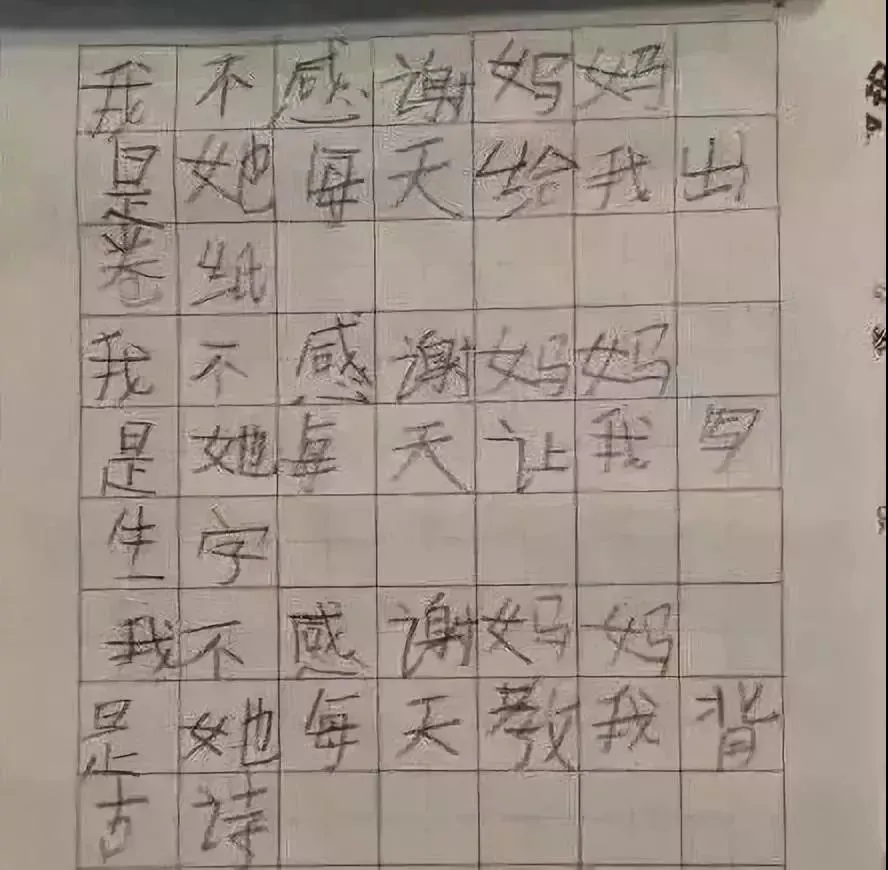 我不感谢妈妈
是她每天给我出
卷纸
我不感谢妈妈
是她每天让我写
生字
我不感谢妈妈
是她每天教我背
古诗